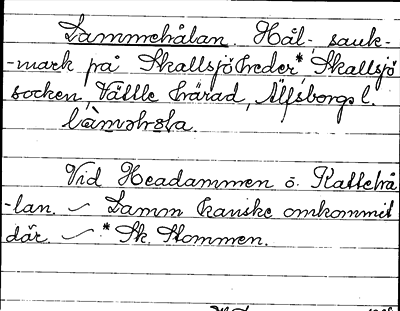 Lammehålan. Hål-, sank-
-mark på Skallsjöheder* Skallsjö
socken, Vättle härad, Älfsborgs l.
Vid Headammen ö. Kattehå
-lan. ~ Lamm kanske omkommit
där. ~ * Sk. Stommen.